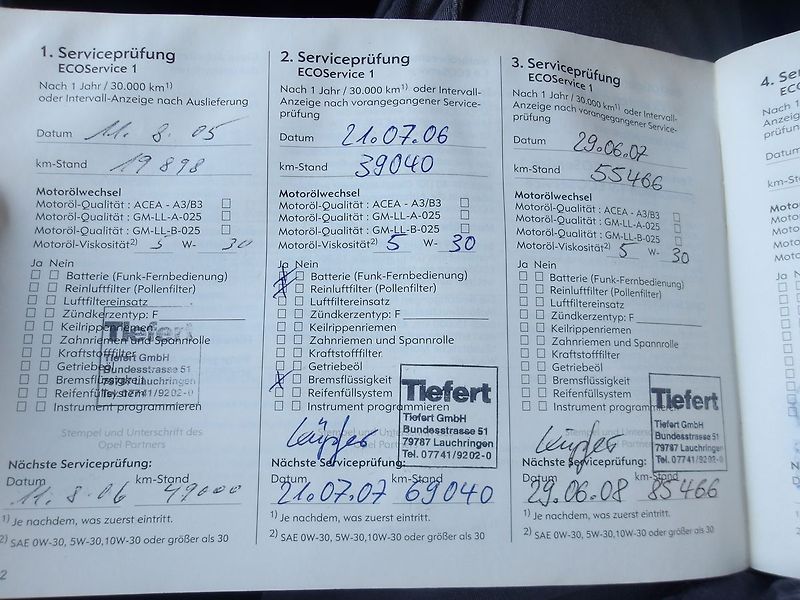 1. Serviceprüfung
ECOService 1
Nach 1 Jahr / 30.000 km1)
oder Intervall-Anzeige nach Auslieferung
Datum 11. 8. 05
km-Stand 19898
Motorölwechsel
Motoröl-Qualität : ACEA - A3/B3 ☐
Motoröl-Qualität : GM-LL-A-025 ☐
Motoröl-Qualität : GM-LL-B-025 ☐
Motoröl-Viskosität2) 5 W- 30
Ja Nein
☐ ☐ Batterie (Funk-Fernbedienung)
☐ ☐ Reinluftfilter (Pollenfilter)
☐ ☐ Luftfiltereinsatz
☐ ☐ Zündkerzentyp: F
☐ ☐ Keilrippenriemen
☐ ☐ Zahnriemen und Spannrolle
☐ ☐ Kraftstofffilter
☐ ☐ Getriebeöl
☐ ☐ Bremsflüssigkeit
☐ ☐ Reifenfüllsystem
☐ ☐ Instrument programmieren
Tiefert
Tiefert GmbH
Bundesstrasse 51
79787 Lauchringen
Tel. 07741/9202-0
Stempel und Unterschrift des
Opel Partners
Nächste Serviceprüfung:
Datum km-Stand
11.8.06 49000
1) Je nachdem, was zuerst eintritt.
2) SAE 0W-30, 5W-30,10W-30 oder größer als 30
2
2. Serviceprüfung
ECOService 1
Nach 1 Jahr / 30.000 km1) oder Intervall-
Anzeige nach vorangegangener Service-
prüfung
Datum 21.07.06
km-Stand 39040
Motorölwechsel
Motoröl-Qualität : ACEA - A3/B3 ☐
Motoröl-Qualität : GM-LL-A-025 ☐
Motoröl-Qualität : GM-LL-B-025 ☐
Motoröl-Viskosität2) 5 W- 30
Ja Nein
☒ ☐ Batterie (Funk-Fernbedienung)
☒ ☐ Reinluftfilter (Pollenfilter)
☐ ☐ Luftfiltereinsatz
☐ ☐ Zündkerzentyp: F
☐ ☐ Keilrippenriemen
☐ ☐ Zahnriemen und Spannrolle
☐ ☐ Kraftstofffilter
☐ ☐ Getriebeöl
☒ ☐ Bremsflüssigkeit
☐ ☐ Reifenfüllsystem
☐ ☐ Instrument programmieren
Tiefert
Tiefert GmbH
Bundesstrasse 51
79787 Lauchringen
Tel. 07741/9202-0
Nächste Serviceprüfung:
Datum km-Stand
21.07.07 69040
1) Je nachdem, was zuerst eintritt.
2) SAE 0W-30, 5W-30,10W-30 oder größer als 30
3. Serviceprüfung
ECOService 1
Nach 1 Jahr / 30.000 km1) oder Intervall-
Anzeige nach vorangegangener Service-
prüfung
Datum 29.06.07
km-Stand 55466
Motorölwechsel
Motoröl-Qualität : ACEA - A3/B3 ☐
Motoröl-Qualität : GM-LL-A-025 ☐
Motoröl-Qualität : GM-LL-B-025 ☐
Motoröl-Viskosität2) 5 W- 30
Ja Nein
☐ ☐ Batterie (Funk-Fernbedienung)
☐ ☐ Reinluftfilter (Pollenfilter)
☐ ☐ Luftfiltereinsatz
☐ ☐ Zündkerzentyp: F
☐ ☐ Keilrippenriemen
☐ ☐ Zahnriemen und Spannrolle
☐ ☐ Kraftstofffilter
☐ ☐ Getriebeöl
☐ ☐ Bremsflüssigkeit
☐ ☐ Reifenfüllsystem
☐ ☐ Instrument programmieren
Tiefert
Tiefert GmbH
Bundesstrasse 51
79787 Lauchringen
Tel. 07741/9202-0
Nächste Serviceprüfung:
Datum km-Stand
29.06.08 85466
1) Je nachdem, was zuerst eintritt.
2) SAE 0W-30, 5W-30,10W-30 oder größer als 30
4.